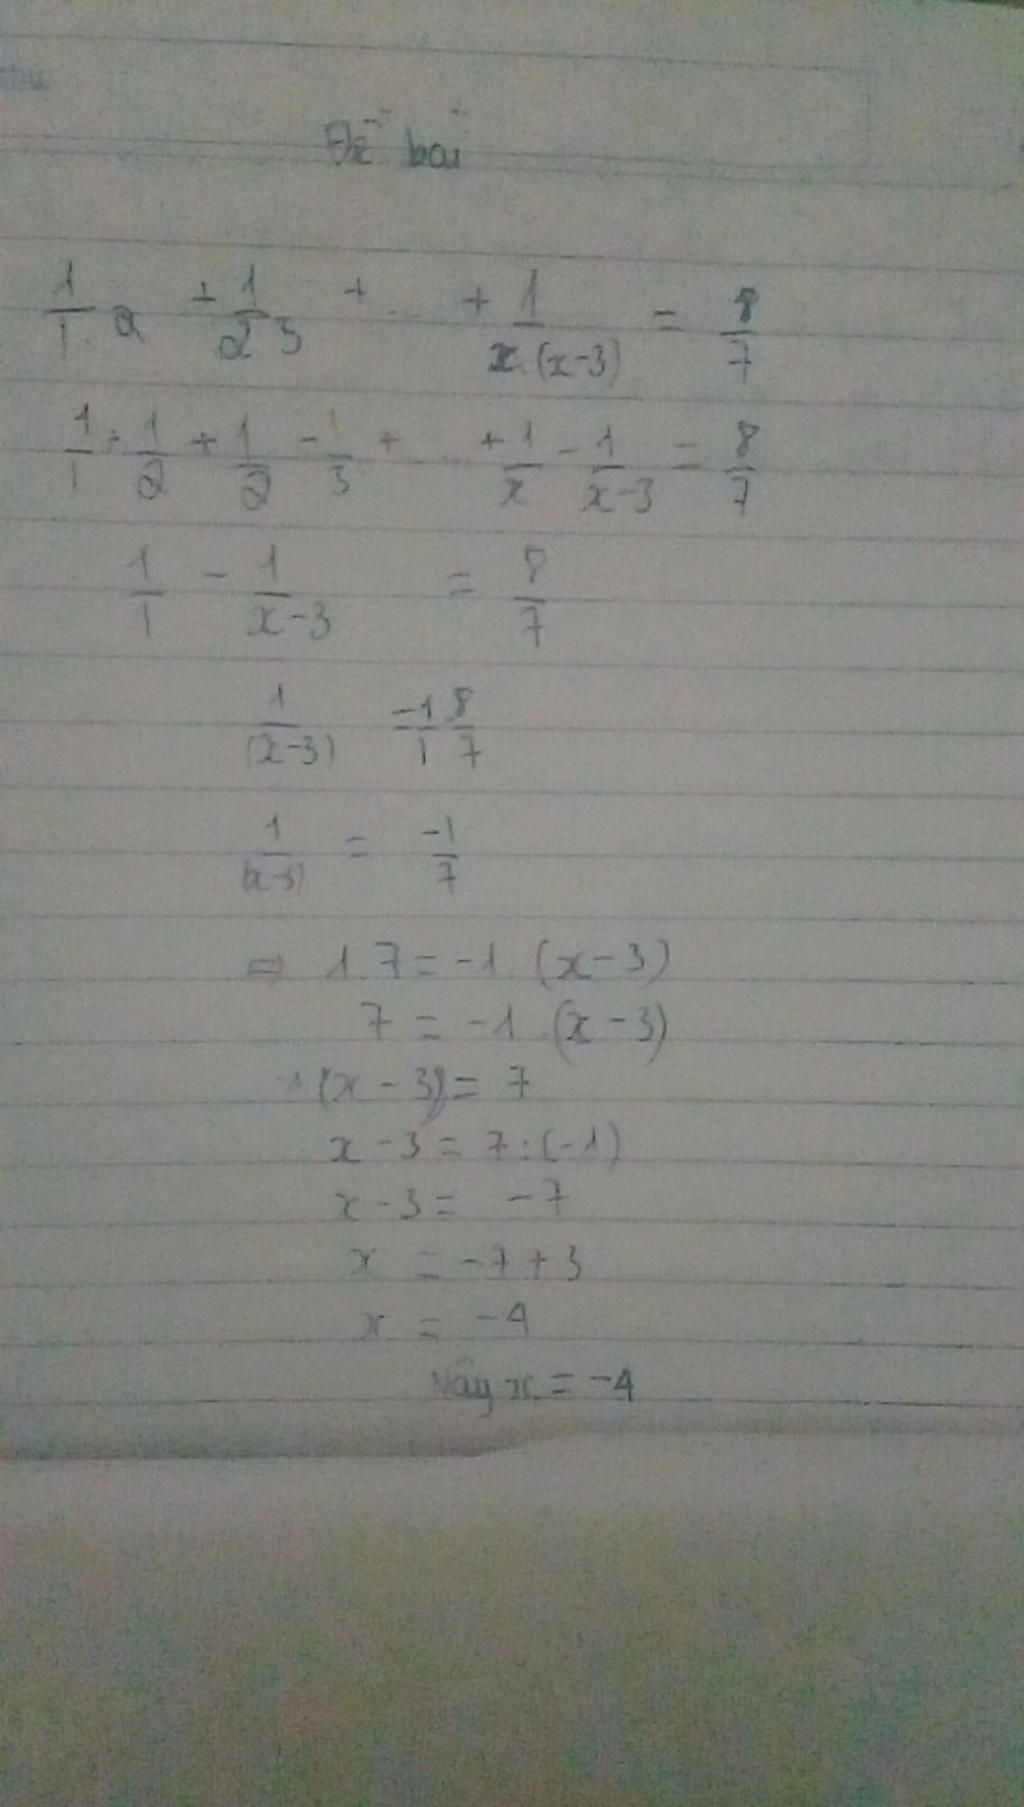 Đề bài
1/1.2 + 1/2.3 + ... + 1/x.(x-3) = 8/7
1/1 - 1/2 + 1/2 - 1/3 + ... + 1/x - 1/x-3 = 8/7
1/1 - 1/x-3 = 8/7
1/(x-3) = 1/1 - 8/7
1/(x-3) = -1/7
⇒ 1.7 = -1.(x-3)
7 = -1.(x-3)
-1(x-3) = 7
x-3 = 7:(-1)
x-3 = -7
x = -7+3
x = -4
Vậy x = -4